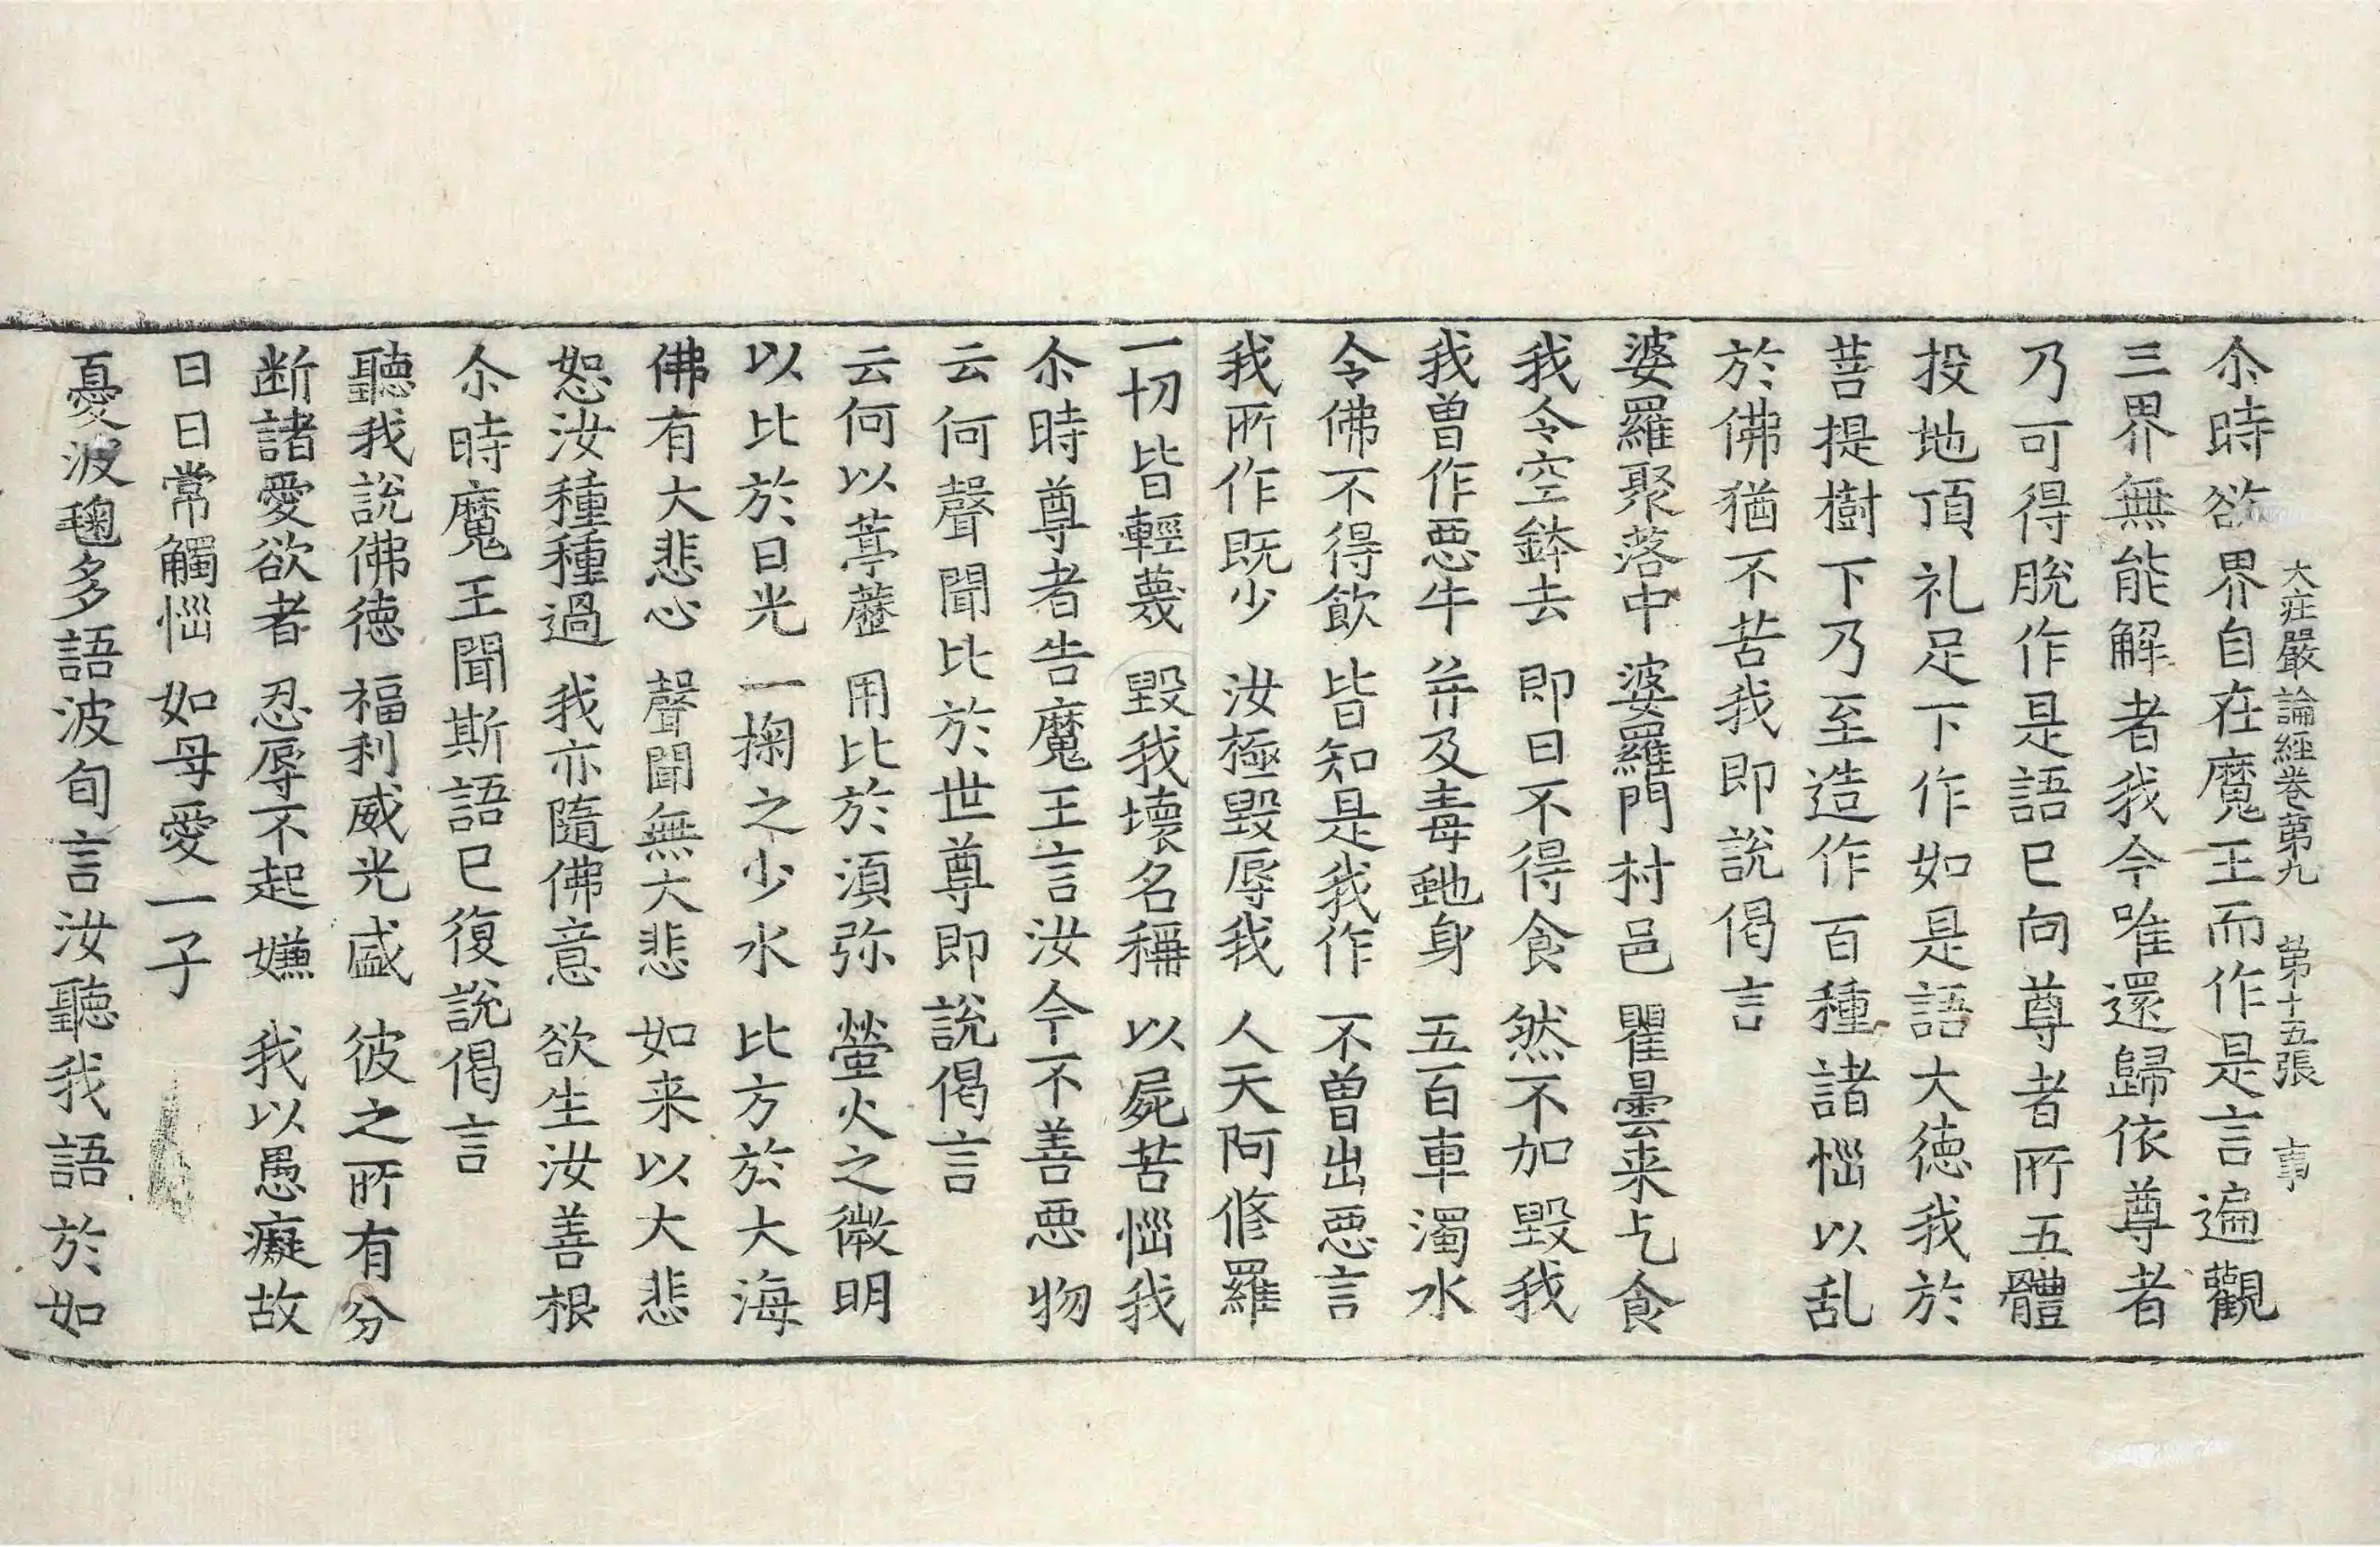 大庄嚴論經卷苐九 苐十五張 事
尒時欲界自在魔王而作是言遍觀
三界無能解者我今唯還歸依尊者
乃可得脫作是語巳向尊者所五體
投地頂礼足下作如是語大德我於
菩提樹下乃至造作百種諸惱以乱
於佛猶不苦我即說偈言
婆羅聚落中 婆羅門村邑 瞿曇来乞食
我令空鉢去 即日不得食 然不加毀我
我曽作悪牛 并及毒虵身 五百車濁水
令佛不得飲 皆知是我作 不曽出悪言
我所作既少 汝極毀辱我 人天阿修羅
一切皆輕蔑 毀我壞名稱 以屍苦惱我
尒時尊者告魔王言汝今不善悪物
云何聲聞比於世尊即說偈言
云何以葶藶 用比於湏弥 螢火之微明
以比於日光 一掬之少水 比方於大海
佛有大悲心 聲聞無大悲 如来以大悲
恕汝種種過 我亦隨佛意 欲生汝善根
尒時魔王聞斯語巳復說偈言
聽我說佛德 福利威光盛 彼之所有分
断諸愛欲者 忍辱不起嫌 我以愚癡故
日日常觸惱 如母愛一子
憂波毱多語波旬言汝聽我語於如